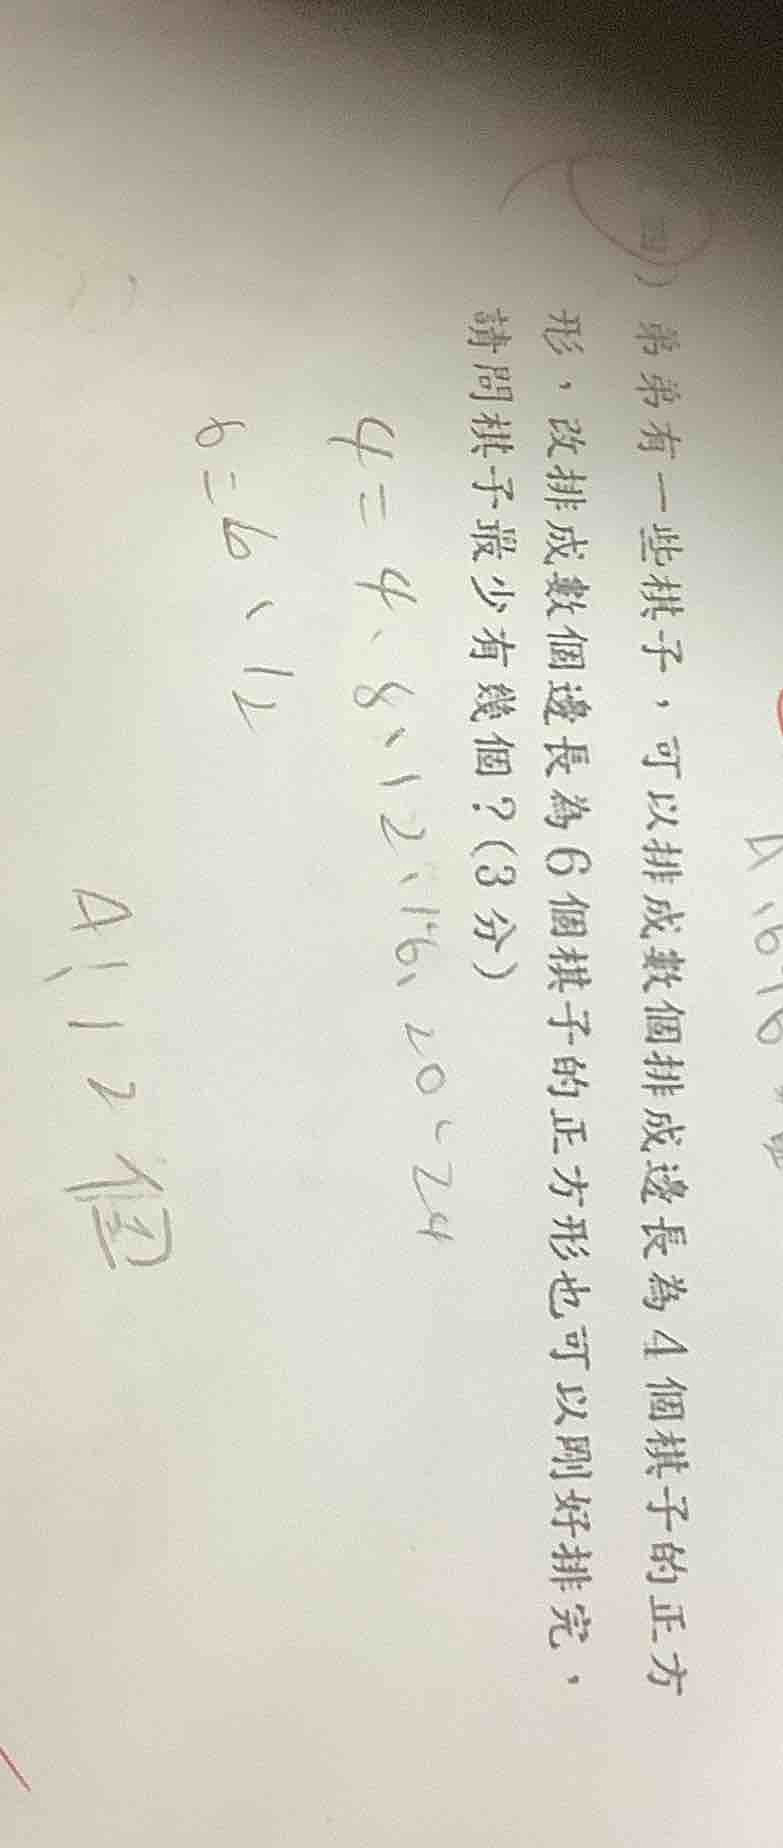 四)弟弟有一些棋子,可以排成數個排成邊長為4個棋子的正方
形,改排成數個邊長為6個棋子的正方形也可以剛好排完,
請問棋子最少有幾個?(3分)
4=4、8、12、16、20、24
6=6、12
A:12個